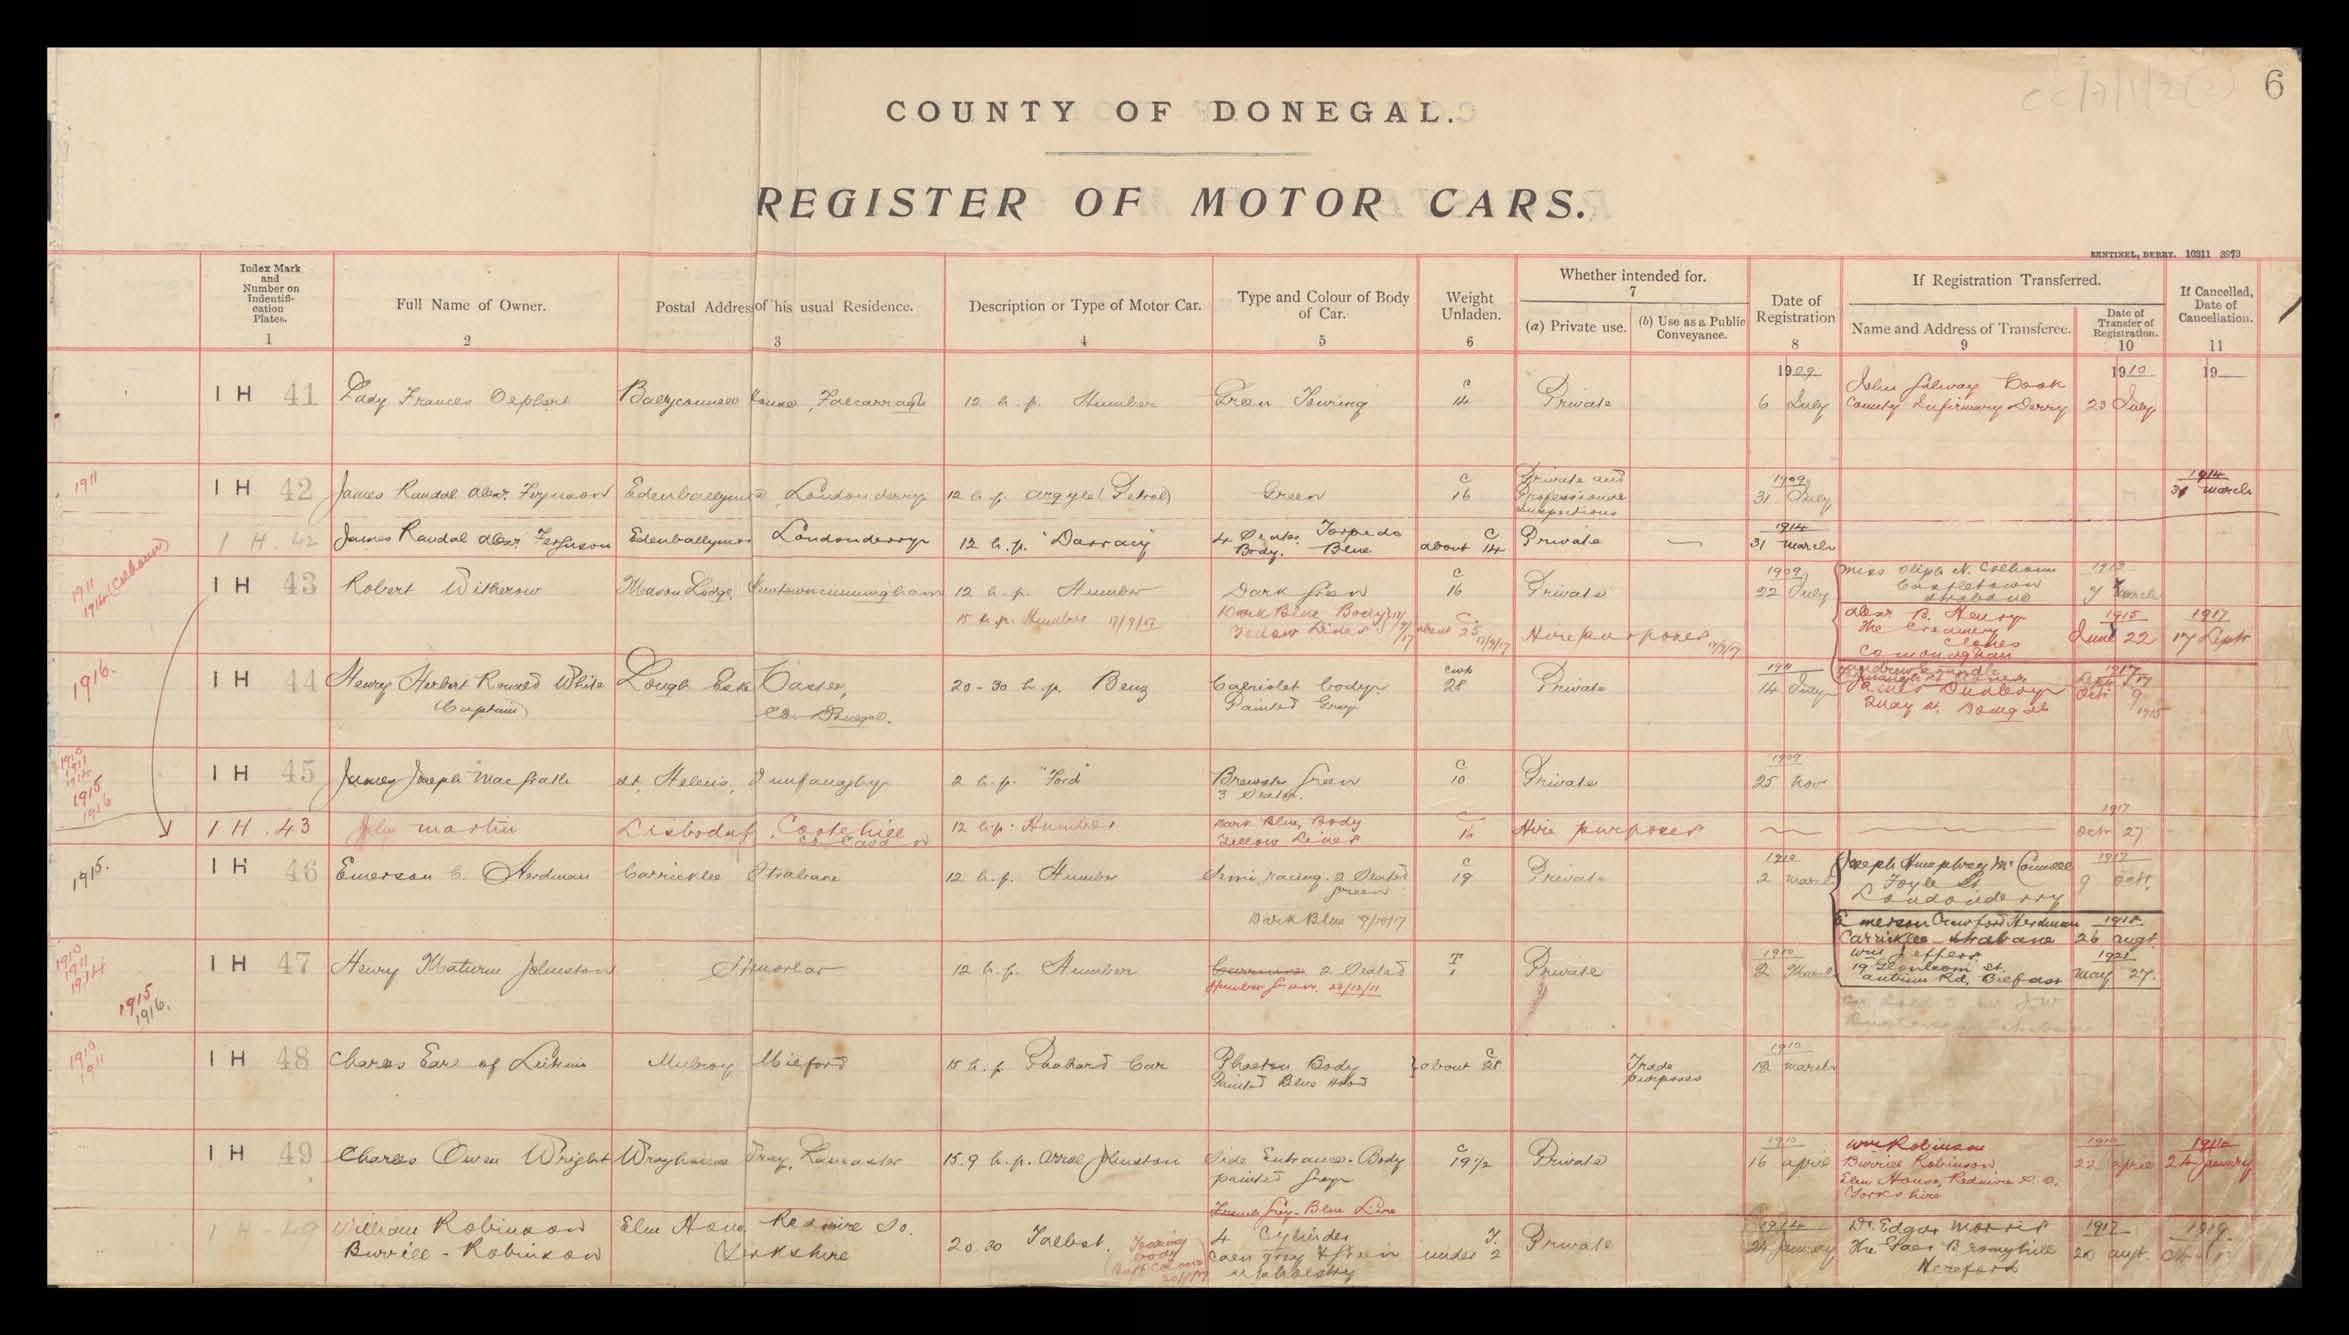 6
COUNTY OF DONEGAL.
REGISTER OF MOTOR CARS.
SENTINEL, DERRY. 10311 3973
Index Mark and Number on Identifi-cation Plates.
1
Full Name of Owner.
2
Postal Address of his usual Residence.
3
Description or Type of Motor Car.
4
Type and Colour of Body of Car.
5
Weight Unladen.
6
Whether intended for.
7
(a) Private use.
(b) Use as a Public Conveyance.
Date of Registration
8
If Registration Transferred.
Name and Address of Transferee.
9
Date of Transfer of Registration.
10
If Cancelled, Date of Cancellation.
11
1909 1910 19
IH 41 Lady Frances Olphert Ballyconnell House, Falcarragh 12 h.p. Humber Green Touring C 14 Private 6 July John Galway Cook
County Infirmary Derry 23 July
1911 IH 42 James Randal Alexr. Ferguson Londonderry 12 h.p. Argyle (Petrol) Green C 16 Private and
Professional
Inspections 1909 31 July 1914 31 March
IH. 42 James Randal Alexr. Ferguson Londonderry 12 h.p. "Darracq" 4 Seater Torpedo
Body. Blue about C 14 Private — 1914 31 March
1911
1914 (Colhoun)
IH 43 Robert Witherow Manor Lodge, Newtowncunningham 12 h.p. Humber Dark Green C 16 Private 1909 22 July Miss Oliph N. Colhoun
Castletown
Strabane 7 March
15 h.p. Humber 17/9/17 Dark Blue Body
Yellow Lines 17/9/17 about 25 17/9/17 Hire purposes 17/9/17 Alexr B. Henry
The Creamery
Clones
Co Monaghan 1915 June 22 1917 17 Sept
1916. IH 44 Henry Herbert Ronald White
(Captain) Lough Eske Castle,
Co. Donegal. 20-30 h.p. Benz Cabriolet body
Painted Grey cwt 28 Private 1911 14 July
James Dunlevy
Quay St. Donegal Oct 9
1915
1910
1911
1914
1915
1916
IH 45 James Joseph MacGrath St. Helens, Dunfanaghy 2 h.p. "Ford" Brewster Green
3 Seater. C 10 Private 1909 25 Nov
IH. 43 Martin Cootehill
Co Cavan 12 h.p. Humber Dark Blue Body
Yellow Lines 16 Hire purposes 1917 Oct 27
1915. IH 46 Emerson C. Herdman Carricklee Strabane 12 h.p. Humber Semi racing. 2 Seated
green C 19 Private 1910 2 March Joseph Humphrey McConnell
Foyle St.
Londonderry 1917 9 Oct.
Dark Blue 9/10/17
Emerson Crawford Herdman
Carricklee Strabane 1918 26 Augt.
Wm Jeffers
19 St.
Antrim Rd. Belfast 1921 May 27.
1910
1911
1914
1915
1916.
IH 47 Henry Maturin Johnston Stranorlar 12 h.p. Humber 2 Seated
Humber Green. 22/12/11 T 1 Private 1910 2 March
1910
1911
IH 48 Charles Earl of Leitrim Mulroy Milford 15 h.p. Packard Car Phaeton Body
Painted Blue about C 28 Trade
purposes 1910 12 March
IH 49 Charles Owen Wright Wray House Wray, Lancaster 15.9 h.p. Arrol Johnston Side Entrance Body
painted Grey C 19½ Private 1910 16 April Wm Robinson
Burrill Robinson
Elm House, Redmire S.O.
Yorkshire 1910 22 April 1914 24 January
French Grey-Blue Line
IH-49 William Robinson
Burrill-Robinson Elm House Redmire So.
Yorkshire 20.30 Talbot. Touring
body
4 Cylinder
grey & green
upholstry under T. 2 Private 1914 24 January Dr. Edgar Morris
Bromyhill
Hereford 1917 20 Augt. 1919.